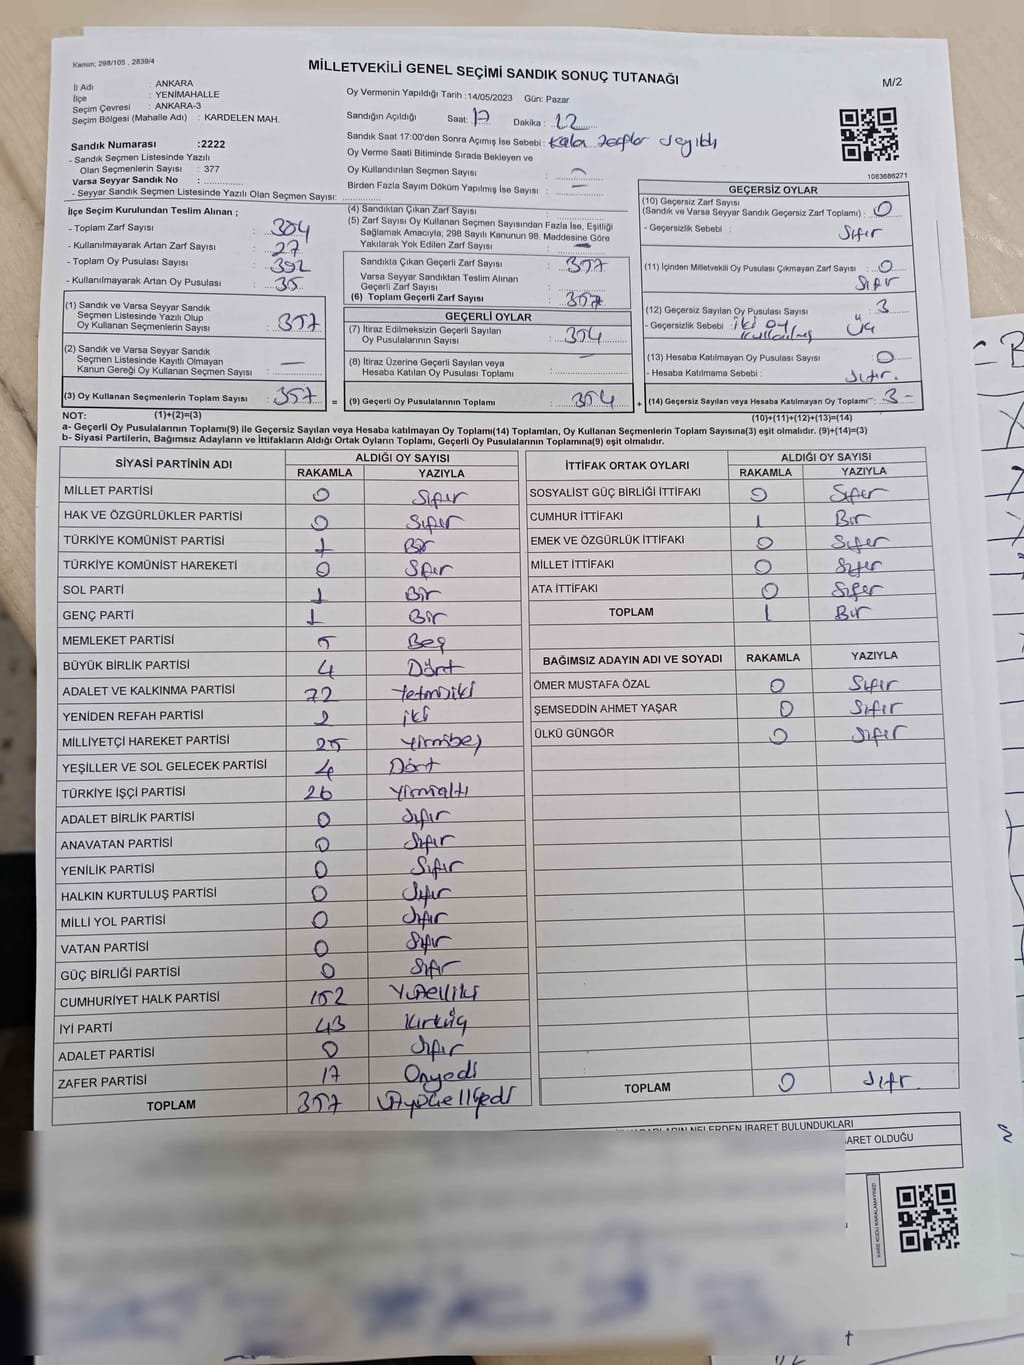 Kanun; 298/105 , 2839/4
MİLLETVEKİLİ GENEL SEÇİMİ SANDIK SONUÇ TUTANAĞI
M/2
İl Adı : ANKARA
İlçe : YENİMAHALLE
Seçim Çevresi : ANKARA-3
Seçim Bölgesi (Mahalle Adı) : KARDELEN MAH.
Sandık Numarası :2222
- Sandık Seçmen Listesinde Yazılı
Olan Seçmenlerin Sayısı : 377
Varsa Seyyar Sandık No :
- Seyyar Sandık Seçmen Listesinde Yazılı Olan Seçmen Sayısı:
Oy Vermenin Yapıldığı Tarih :14/05/2023 Gün: Pazar
Sandığın Açıldığı Saat: 17 Dakika : 12
Sandık Saat 17:00'den Sonra Açımış İse Sebebi : Kalan zarflar sayıldı
Oy Verme Saati Bitiminde Sırada Bekleyen ve
Oy Kullandırılan Seçmen Sayısı : –
Birden Fazla Sayım Döküm Yapılmış İse Sayısı : –
1083686271
İlçe Seçim Kurulundan Teslim Alınan ;
- Toplam Zarf Sayısı : 384
- Kullanılmayarak Artan Zarf Sayısı : 27
- Toplam Oy Pusulası Sayısı : 392
- Kullanılmayarak Artan Oy Pusulası : 35
(1) Sandık ve Varsa Seyyar Sandık
Seçmen Listesinde Yazılı Olup
Oy Kullanan Seçmenlerin Sayısı : 357
(2) Sandık ve Varsa Seyyar Sandık
Seçmen Listesinde Kayıtlı Olmayan
Kanun Gereği Oy Kullanan Seçmen Sayısı : —
(3) Oy Kullanan Seçmenlerin Toplam Sayısı : 357
(4) Sandıktan Çıkan Zarf Sayısı :
(5) Zarf Sayısı Oy Kullanan Seçmen Sayısından Fazla İse, Eşitliği
Sağlamak Amacıyla; 298 Sayılı Kanunun 98. Maddesine Göre
Yakılarak Yok Edilen Zarf Sayısı : —
Sandıkta Çıkan Geçerli Zarf Sayısı : 357
Varsa Seyyar Sandıktan Teslim Alınan
Geçerli Zarf Sayısı :
(6) Toplam Geçerli Zarf Sayısı : 357
GEÇERLİ OYLAR
(7) İtiraz Edilmeksizin Geçerli Sayılan
Oy Pusulasının Sayısı : 354
(8) İtiraz Üzerine Geçerli Sayılan veya
Hesaba Katılan Oy Pusulası Toplamı : –
= (9) Geçerli Oy Pusulalarının Toplamı : 354
GEÇERSİZ OYLAR
(10) Geçersiz Zarf Sayısı
(Sandık ve Varsa Seyyar Sandık Geçersiz Zarf Toplamı) : 0
- Geçersizlik Sebebi : Sıfır
(11) İçinden Milletvekili Oy Pusulası Çıkmayan Zarf Sayısı : 0
Sıfır
(12) Geçersiz Sayılan Oy Pusulası Sayısı : 3
- Geçersizlik Sebebi : iki oy kullanılmış Üç
(13) Hesaba Katılmayan Oy Pusulası Sayısı : 0
- Hesaba Katılmama Sebebi : Sıfır.
+ (14) Geçersiz Sayılan veya Hesaba Katılmayan Oy Toplamı : 3 -
NOT: (1)+(2)=(3) (10)+(11)+(12)+(13)=(14)
a- Geçerli Oy Pusulalarının Toplamı(9) ile Geçersiz Sayılan veya Hesaba katılmayan Oy Toplamı(14) Toplamları, Oy Kullanan Seçmenlerin Toplam Sayısına(3) eşit olmalıdır. (9)+(14)=(3)
b- Siyasi Partilerin, Bağımsız Adayların ve İttifakların Aldığı Ortak Oyların Toplamı, Geçerli Oy Pusulalarının Toplamına(9) eşit olmalıdır.
SİYASİ PARTİNİN ADI ALDIĞI OY SAYISI
RAKAMLA YAZIYLA
MİLLET PARTİSİ 0 Sıfır
HAK VE ÖZGÜRLÜKLER PARTİSİ 0 Sıfır
TÜRKİYE KOMÜNİST PARTİSİ 1 Bir
TÜRKİYE KOMÜNİST HAREKETİ 0 Sıfır
SOL PARTİ 1 Bir
GENÇ PARTİ 1 Bir
MEMLEKET PARTİSİ 5 Beş
BÜYÜK BİRLİK PARTİSİ 4 Dört
ADALET VE KALKINMA PARTİSİ 72 Yetmişiki
YENİDEN REFAH PARTİSİ 2 iki
MİLLİYETÇİ HAREKET PARTİSİ 25 Yirmibeş
YEŞİLLER VE SOL GELECEK PARTİSİ 4 Dört
TÜRKİYE İŞÇİ PARTİSİ 26 Yirmialtı
ADALET BİRLİK PARTİSİ 0 Sıfır
ANAVATAN PARTİSİ 0 Sıfır
YENİLİK PARTİSİ 0 Sıfır
HALKIN KURTULUŞ PARTİSİ 0 Sıfır
MİLLİ YOL PARTİSİ 0 Sıfır
VATAN PARTİSİ 0 Sıfır
GÜÇ BİRLİĞİ PARTİSİ 0 Sıfır
CUMHURİYET HALK PARTİSİ 152 Yüzelliiki
İYİ PARTİ 43 Kırküç
ADALET PARTİSİ 0 Sıfır
ZAFER PARTİSİ 17 Onyedi
TOPLAM 357 Üçyüzelliyedi
İTTİFAK ORTAK OYLARI ALDIĞI OY SAYISI
RAKAMLA YAZIYLA
SOSYALİST GÜÇ BİRLİĞİ İTTİFAKI 0 Sıfır
CUMHUR İTTİFAKI 1 Bir
EMEK VE ÖZGÜRLÜK İTTİFAKI 0 Sıfır
MİLLET İTTİFAKI 0 Sıfır
ATA İTTİFAKI 0 Sıfır
TOPLAM 1 Bir
BAĞIMSIZ ADAYIN ADI VE SOYADI RAKAMLA YAZIYLA
ÖMER MUSTAFA ÖZAL 0 Sıfır
ŞEMSEDDİN AHMET YAŞAR 0 Sıfır
ÜLKÜ GÜNGÖR 0 Sıfır
TOPLAM 0 Sıfır.
NELERDEN İBARET BULUNDUKLARI
BARET OLDUĞU
KARE KODU KARALAMAYINIZ!